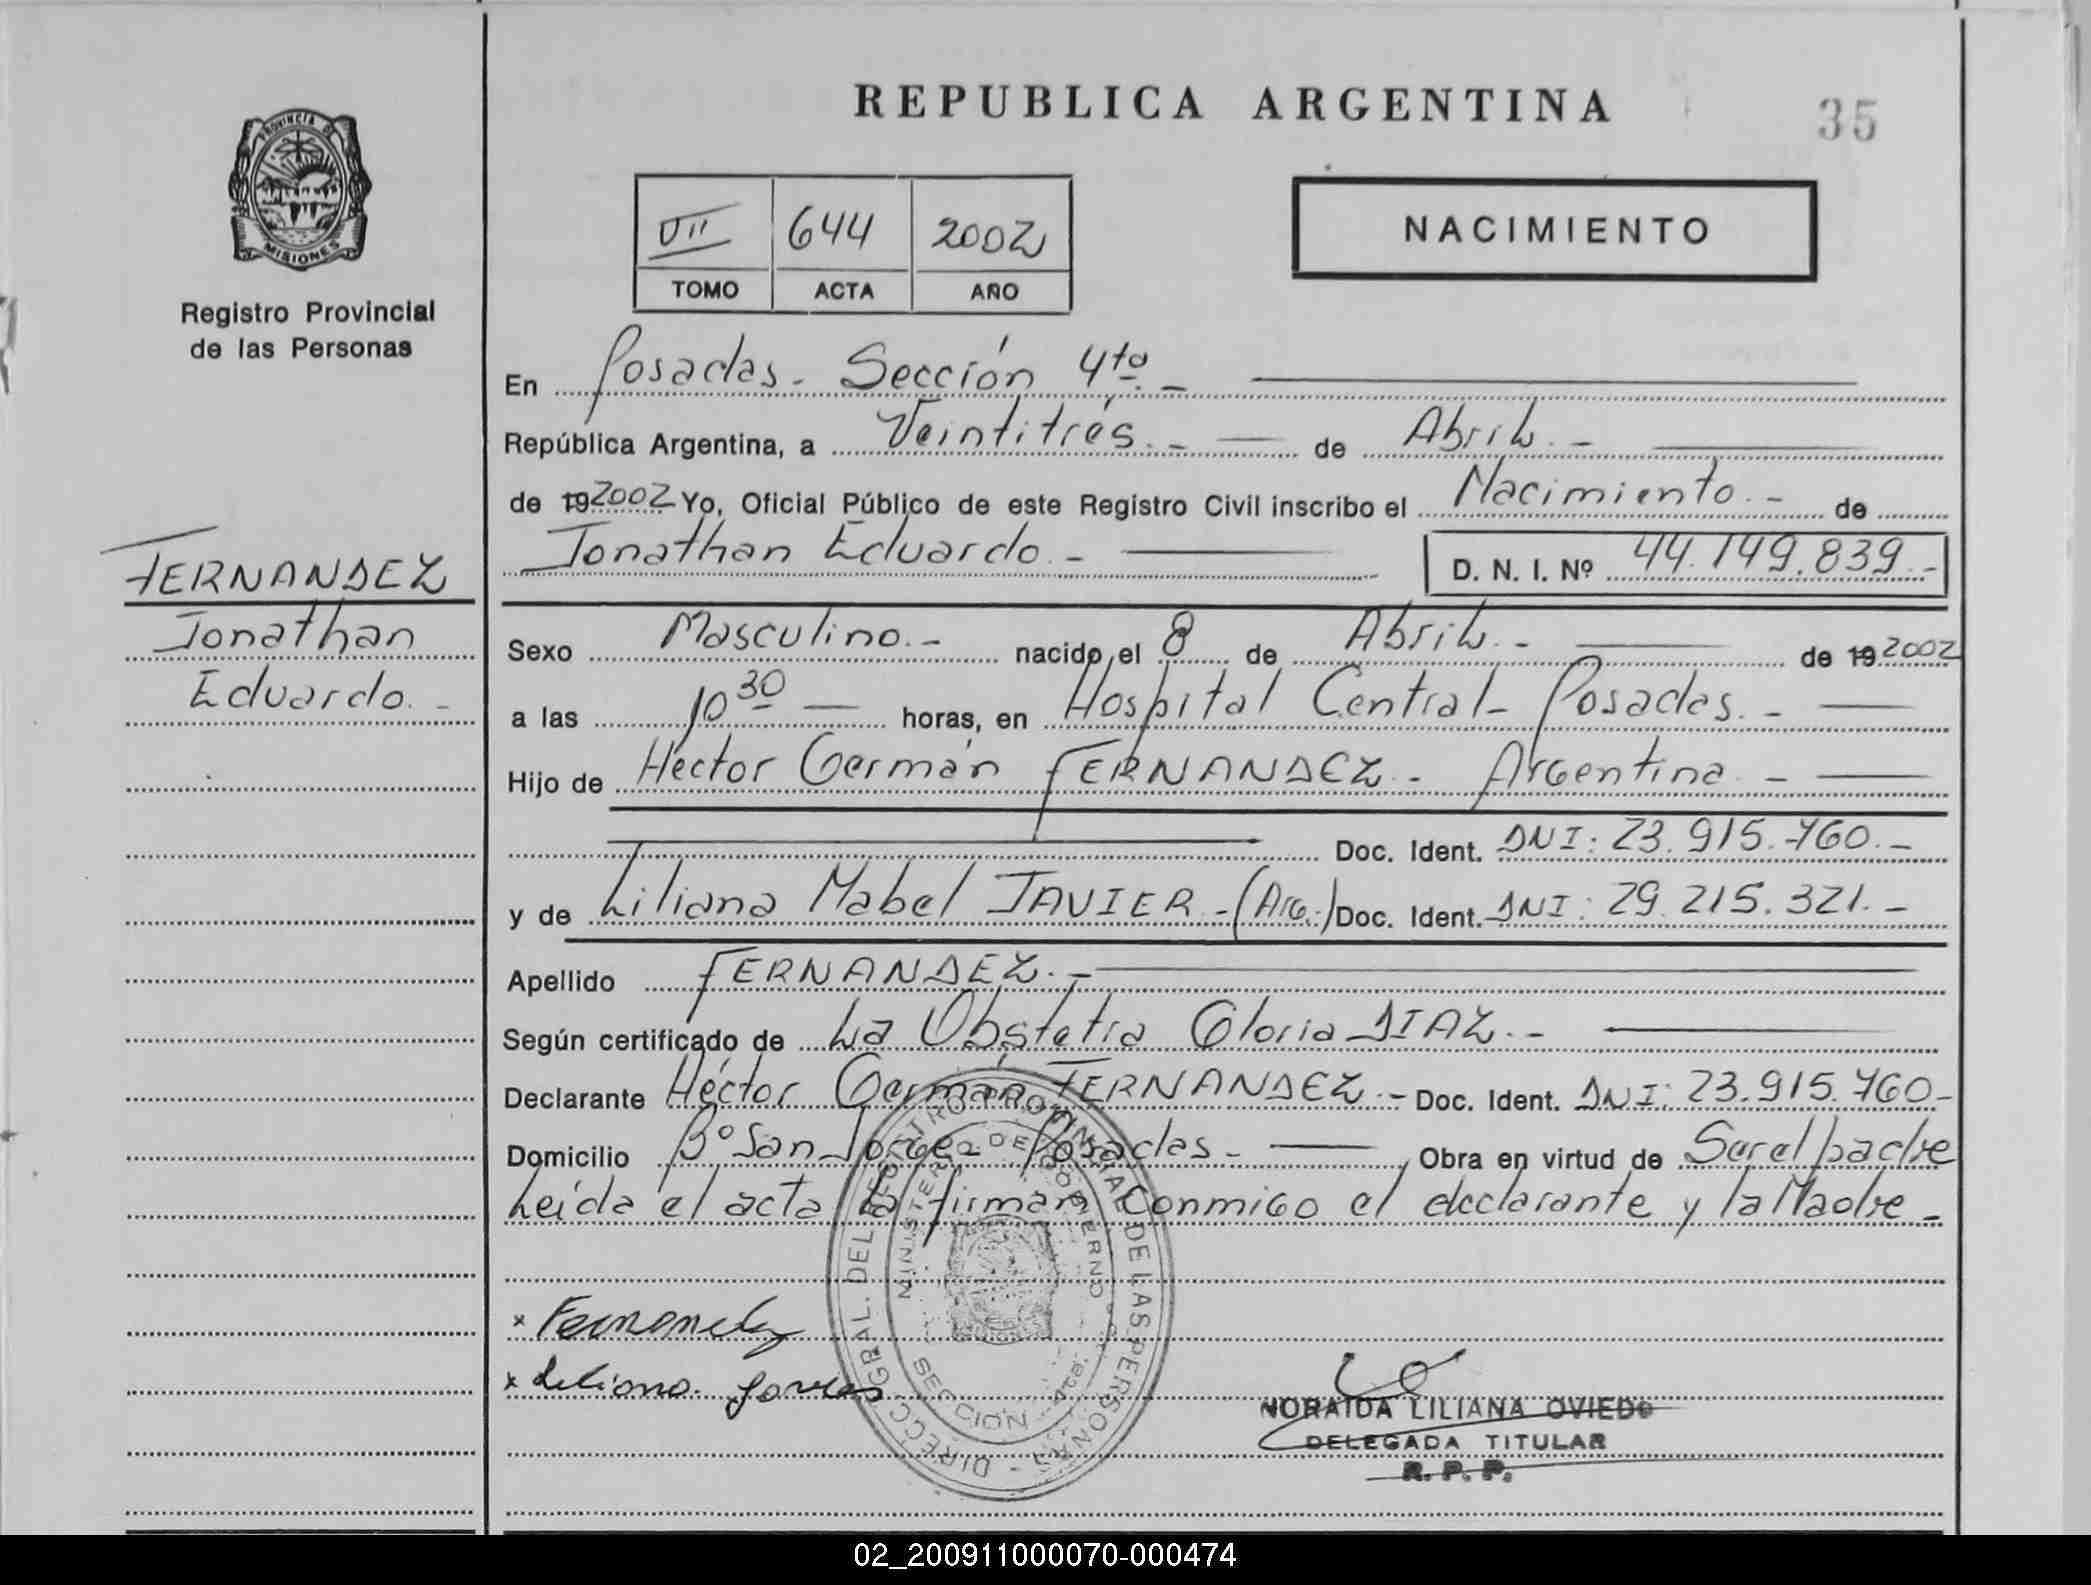 REPUBLICA ARGENTINA
35
PROVINCIA DE
MISIONES
Registro Provincial
de las Personas
VII 644 2002
TOMO ACTA AÑO
NACIMIENTO
En Posadas.- Sección 4ta.-
República Argentina, a Veintitrés.- de Abril.-
de 19 2002 Yo, Oficial Público de este Registro Civil inscribo el Nacimiento.- de
Jonathan Eduardo.- D. N. I. Nº 44.149.839.-
FERNANDEZ
Jonathan
Eduardo.-
Sexo Masculino.- nacido el 8 de Abril.- de 19 2002
a las 10 30 horas, en Hospital Central- Posadas.-
Hijo de Héctor Germán FERNANDEZ.- Argentina.-
Doc. Ident. DNI: 23.915.760.-
y de Liliana Mabel JAVIER.-(Arg.-) Doc. Ident. DNI: 29.215.321.-
Apellido FERNANDEZ.-
Según certificado de La Obstetra Gloria DIAZ.-
Declarante Héctor Germán FERNANDEZ.- Doc. Ident. DNI: 23.915.760-
Domicilio Bº San Jorge- Posadas.- Obra en virtud de Ser el padre
Leída el acta la firman conmigo el declarante y la Madre-
DIRECC. GRAL. DEL REGISTRO PROVINCIAL DE LAS PERSONAS -
MINISTERIO DE GOBIERNO
SECCION 4ta.
x Fernandez
x Liliana
NORAIDA LILIANA OVIEDO
DELEGADA TITULAR
R. P. P.
02_200911000070-000474